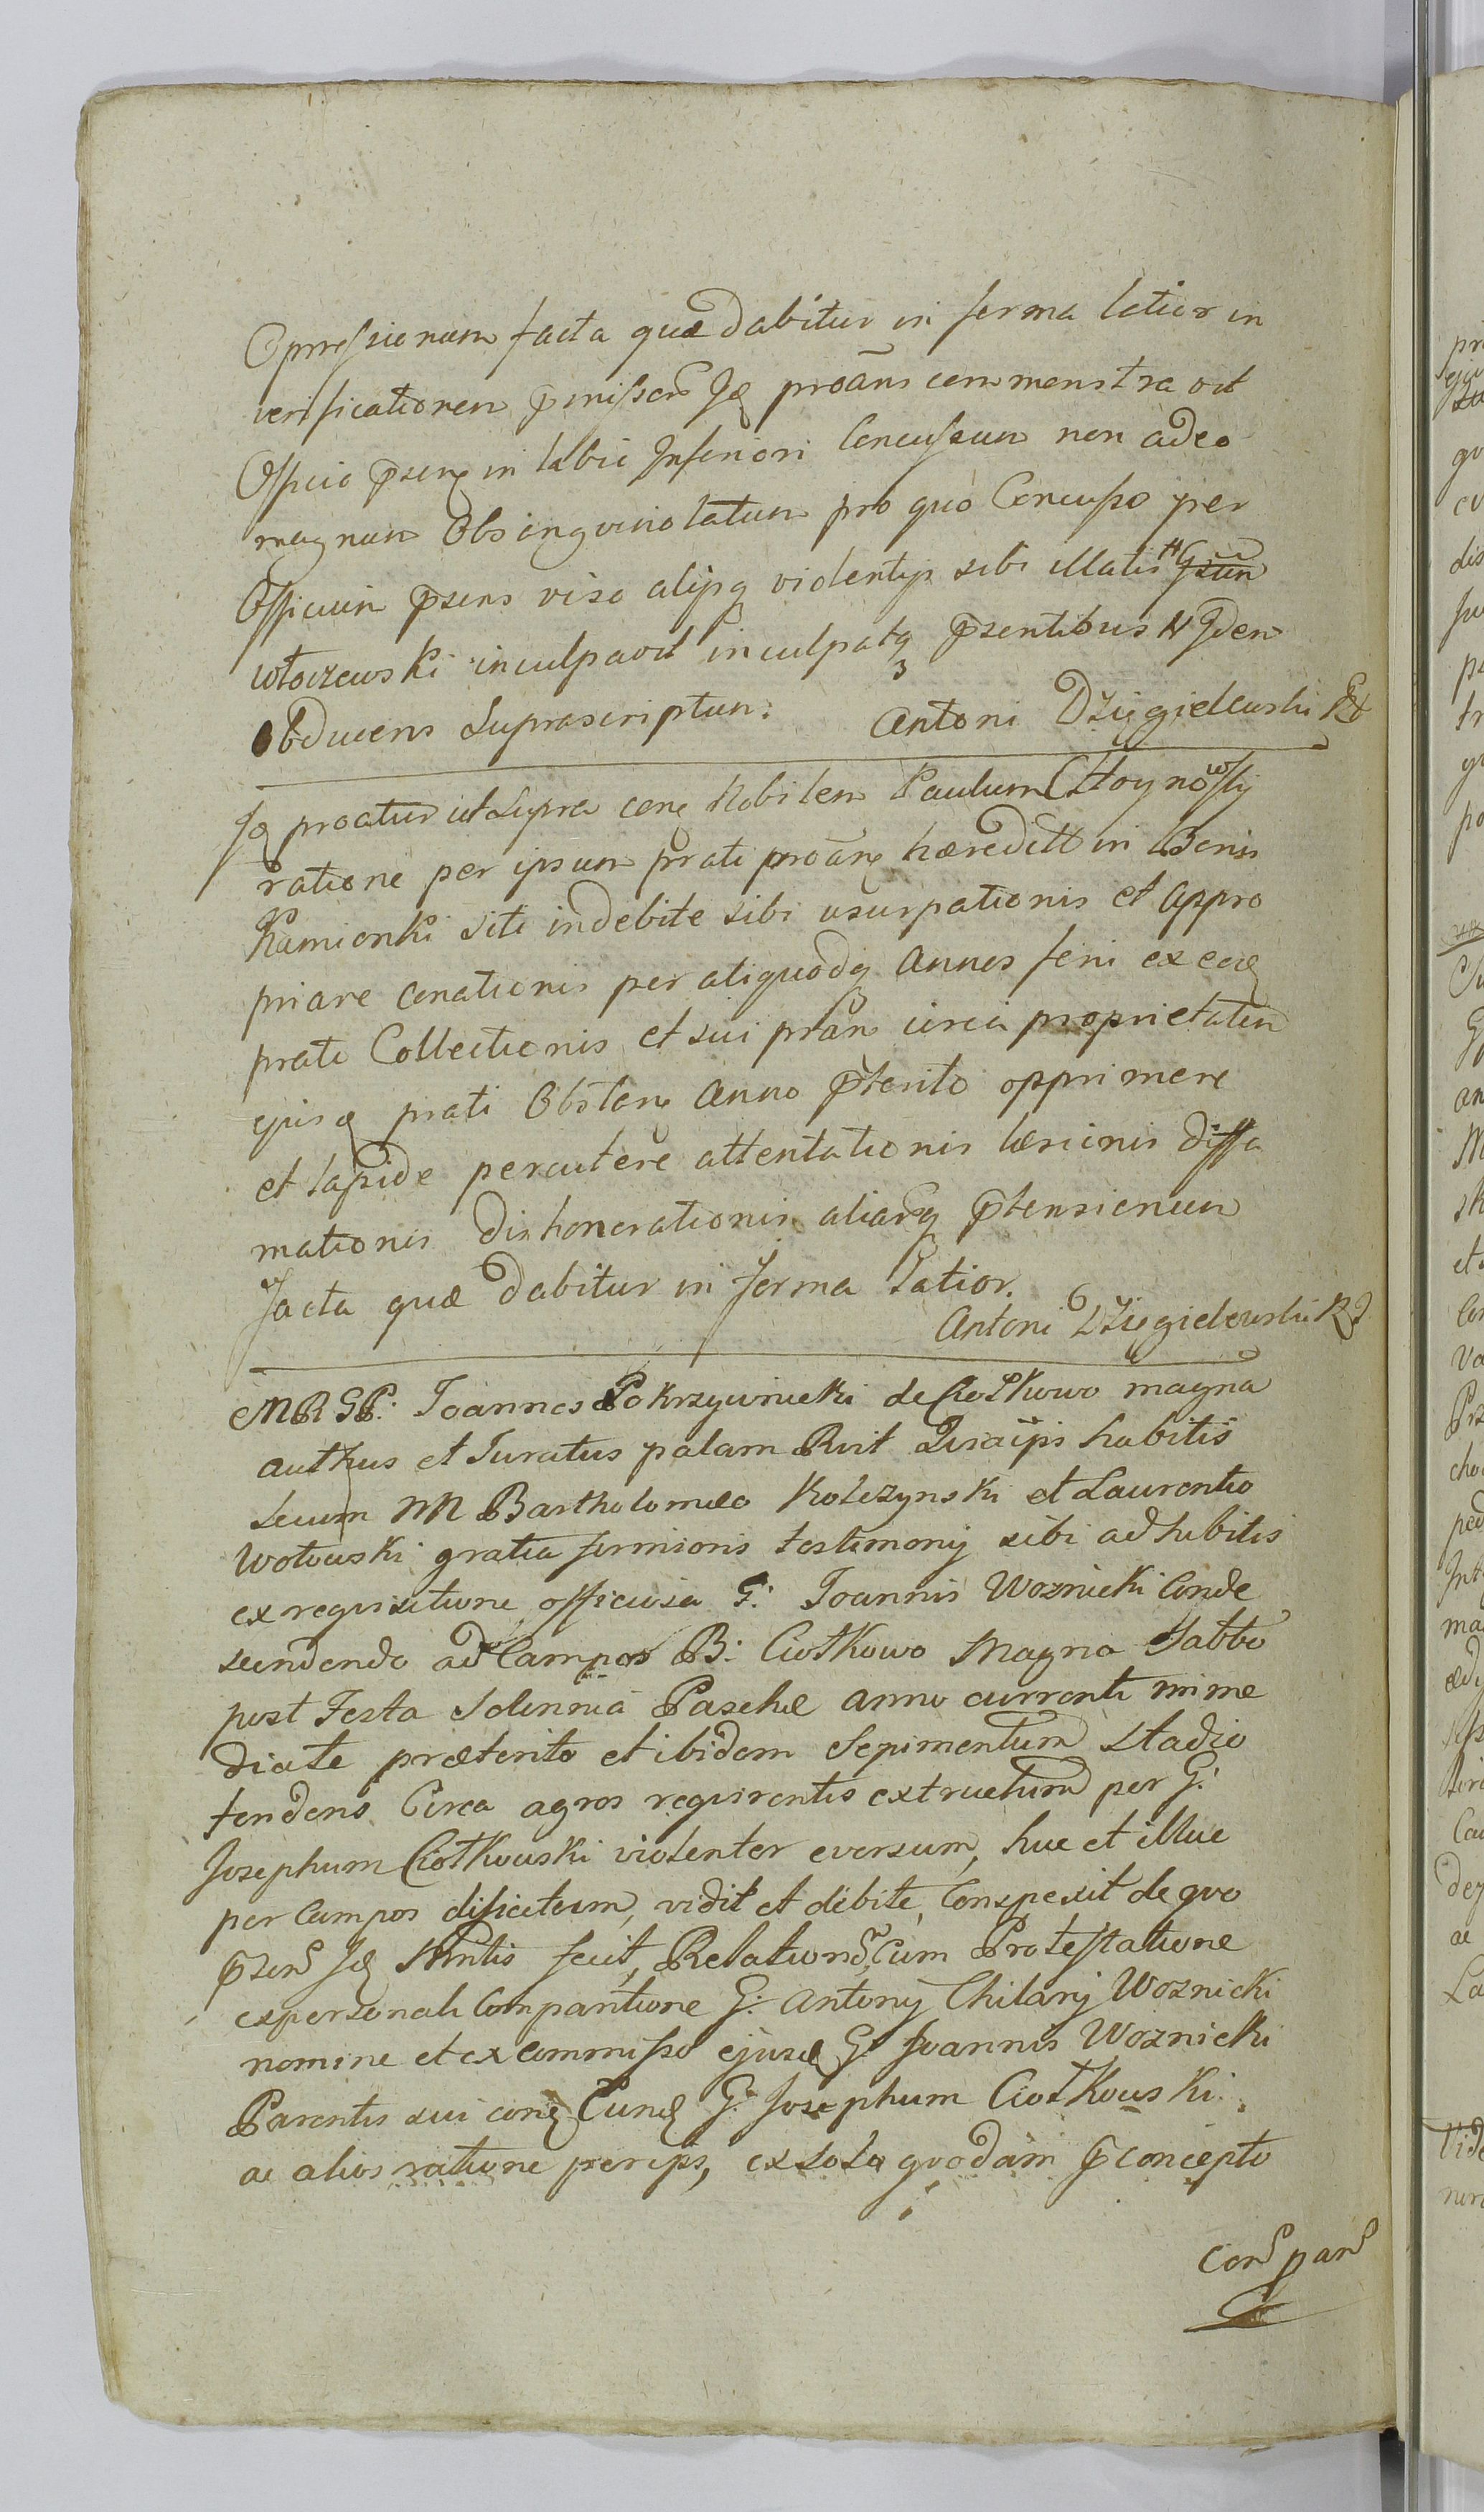 Oppressionum facta quæ dabitur in forma latior in
verificationem p̄missor̄ Jd proāns commonstravit
Officio p̄senti in labio Inferiori Concussum non adeo
magnum Obsangvinolatum pro quo Concusso per
Officium p̄sens viso alijsq violentijs sibi illatis
Włoczewski inculpavit inculpatq p̄sentibus N Jdem
obducens Suprascriptum: Antoni Dzięgielewski
Jd proatur ut Supra con Nobilem Paulum Choynowski
ratione per ipsum prati proān hæreditt in Bonis
Kamionki siti indebite sibi usurpationis et appro
priare conationis per aliquodq Annos feni ex eod
prati Collectionis et sui prān circa proprietatem
ejusd prati Obstan Anno p̄terito opprimere
et lapide percutere attentationis læsionis diffa
mationis dishonorationis aliarq p̄tensionum
facta quæ dabitur in forma latior.
Antoni Dzięgielewski
MRGP: Joannes Pokrzywnicki de Ciołkowo magna
authus et Juratus palam Rvit Quia ips habitis
secum NN Bartholomeo Kolczynski et Laurentio
Wołowski gratia firmioris testimonij sibi adhibitis
ex requisitione officiosa G: Joannis Woznicki Conde
scendendo ad Campos B: Ciołkowo Magna Sabbo
post Festa Solennia Paschæ anno currenti imme
diate præterito et ibidem Sepimentum Stadio
tendens Circa agros requirentis extructum per G:
Josephum Ciołkowski violenter eversum, huc et illuc
per Campos disiectum, vidit et debite Conspexit de quo
p̄zen Jd Mntis fecit, Relation Cum Protestatione
expersonali Comparitione G: Antonij Chilarij Woznicki
nomine et ex commisso ejusd G: Joannis Woznicki
Parentis sui con Eund G: Josephum Ciołkowski
ac alios ratione per ips, ex solo quodam p̄concepto
con par